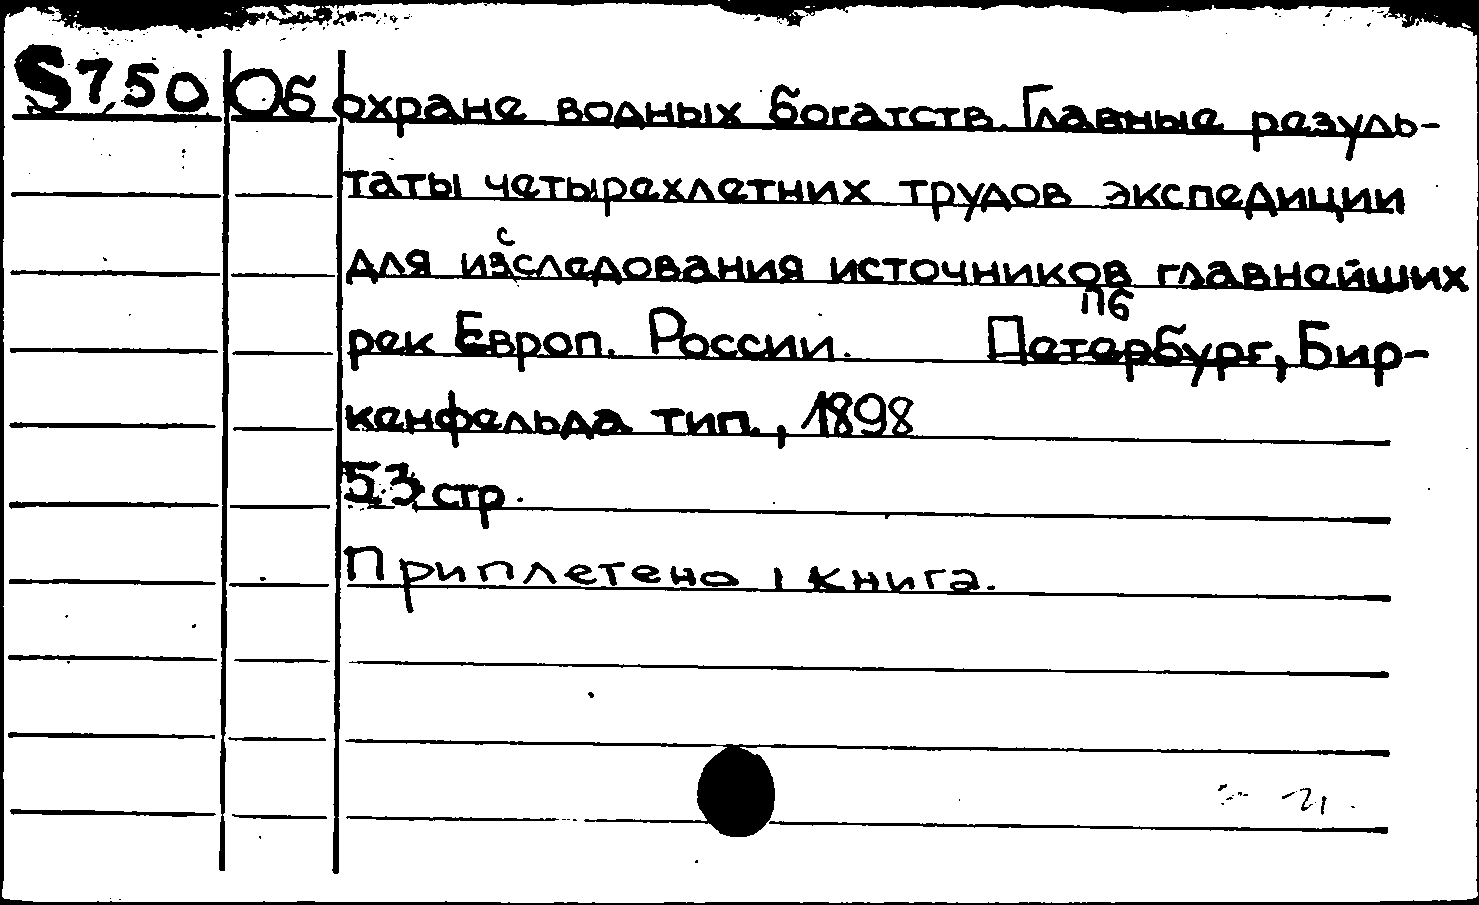 S750 Об охране водных богатств. Главные резуль-
таты четырехлетних трудов экспедиции
для исследования источников главнейших
рек Европ. России. Пб Петербург, Бир-
кенфельда тип., 1898
53 стр.
Приплетено 1 книга.